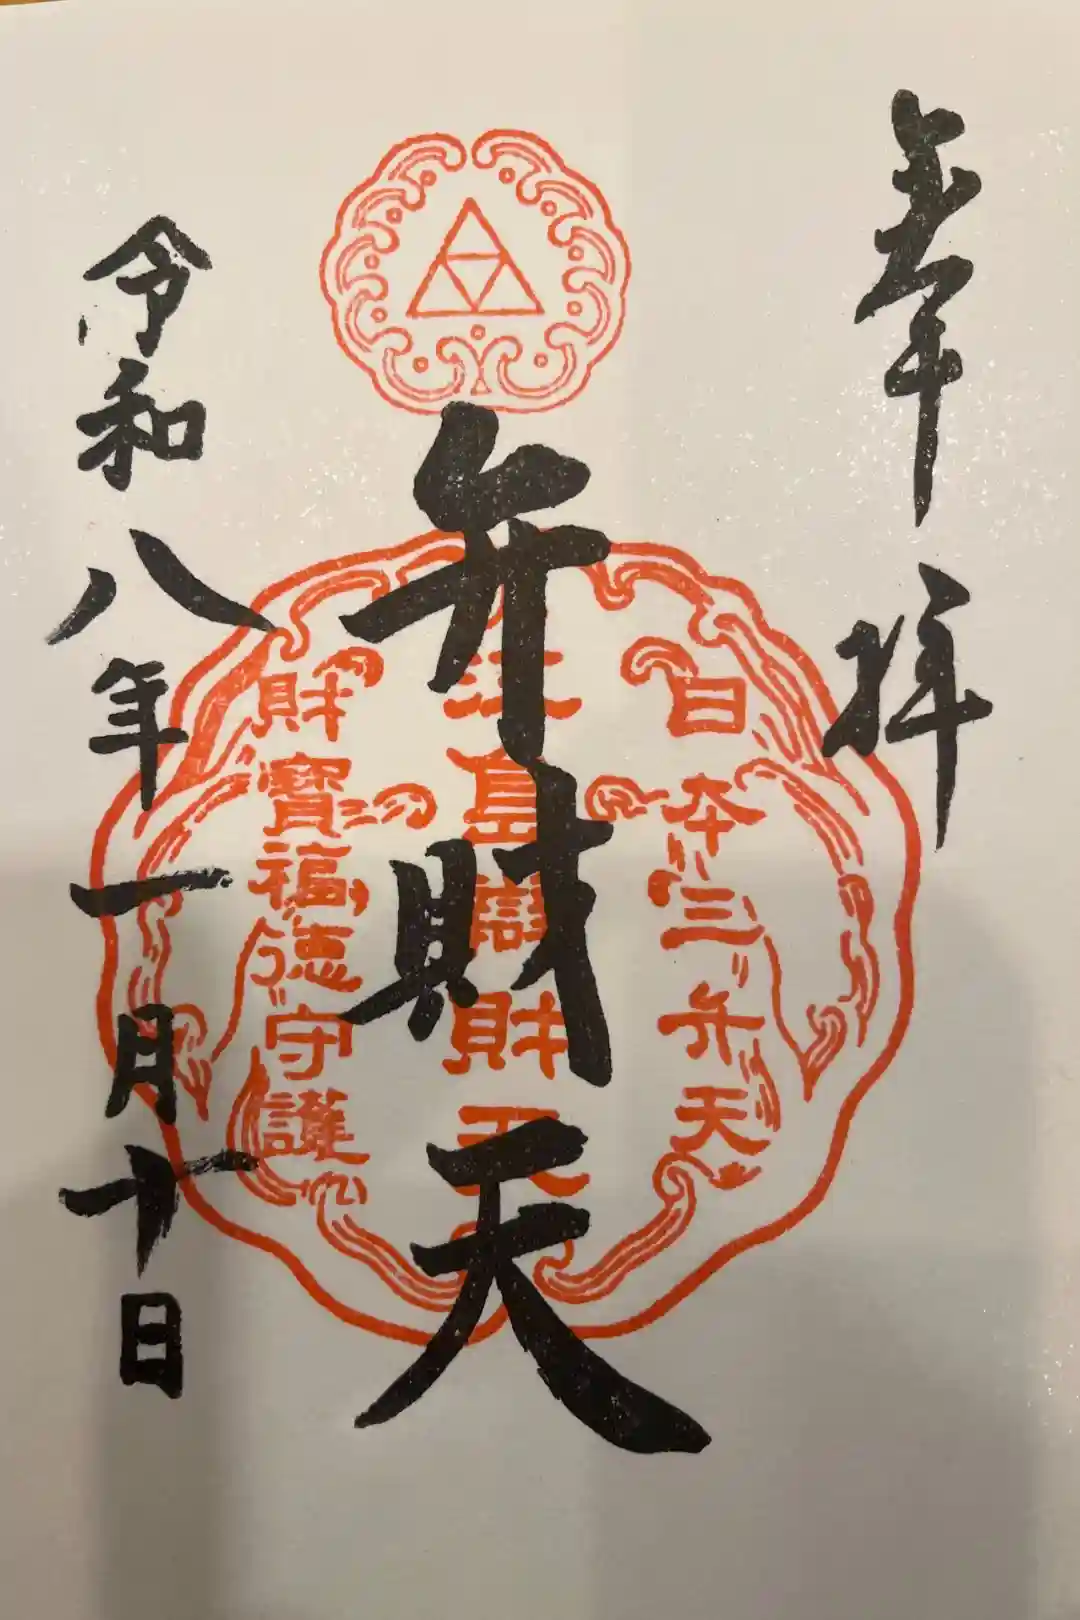 奉拝
日本三弁天
弁財天
江島辯財天
財寶福徳守護
令和八年一月十日